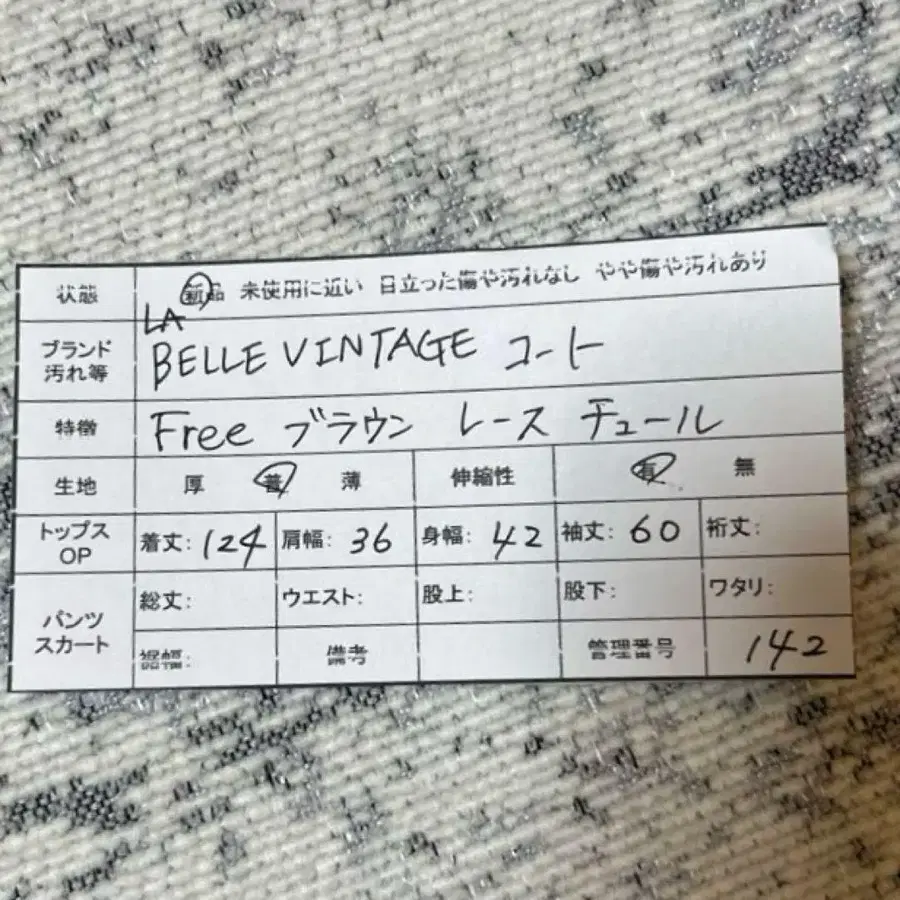 状態 新品 未使用に近い 目立った傷や汚れなし やや傷や汚れあり
ブランド 汚れ等 LA BELLE VINTAGE コート
特徴 Free ブラウン レース チュール
生地 厚 普 薄 伸縮性 有 無
トップス OP 着丈: 124 肩幅: 36 身幅: 42 袖丈: 60 裄丈:
パンツ スカート 総丈: ウエスト: 股上: 股下: ワタリ:
裾幅: 備考 管理番号 142